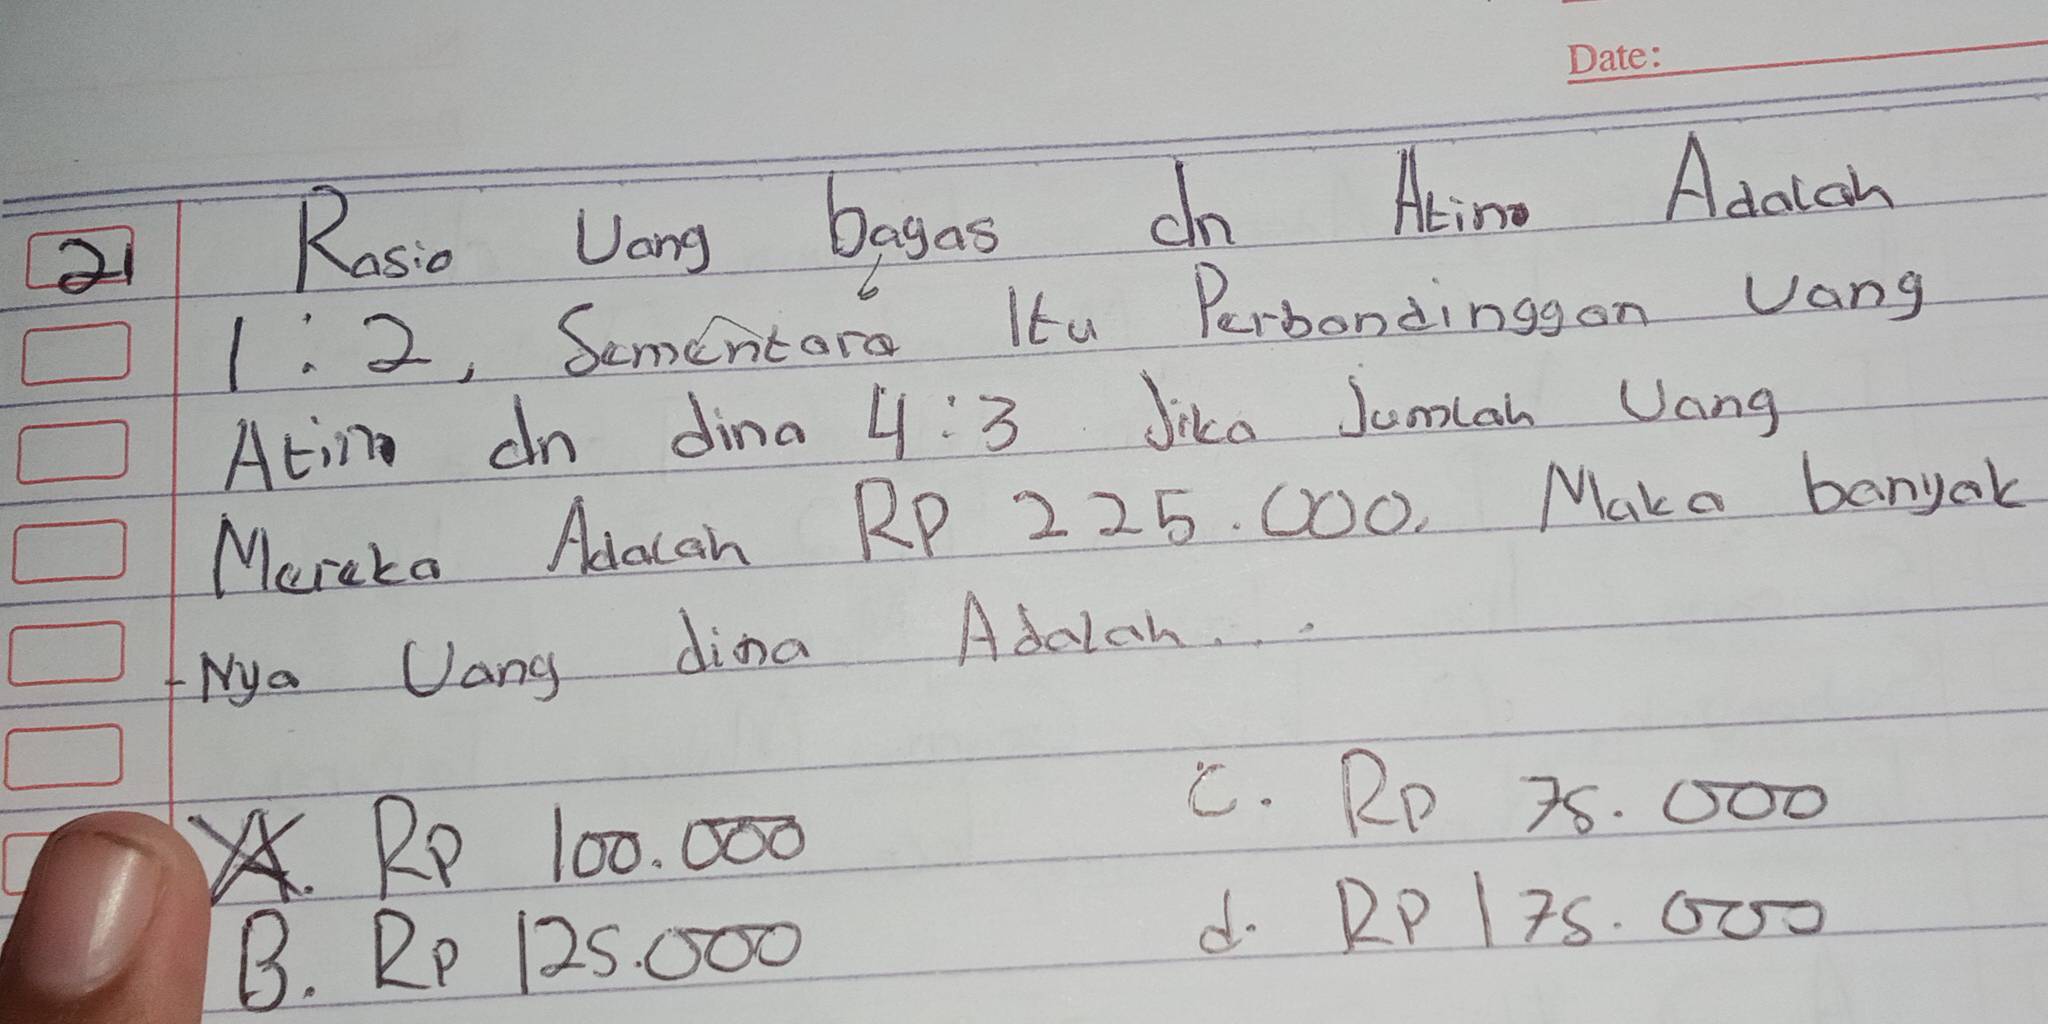 Date:
21 Rasio Uang bagas dn Atino Adalah
1 : 2, Sementara Itu Perbandinggan Uang
Atino dn dina 4:3 Jika Jumlah Uang
Mereka Adalah RP 225.000. Maka banyak
-Nya Uang dina Adalah....
A. RP 100.000
B. RP 125.000
C. RP 75.000
d. RP 175.000